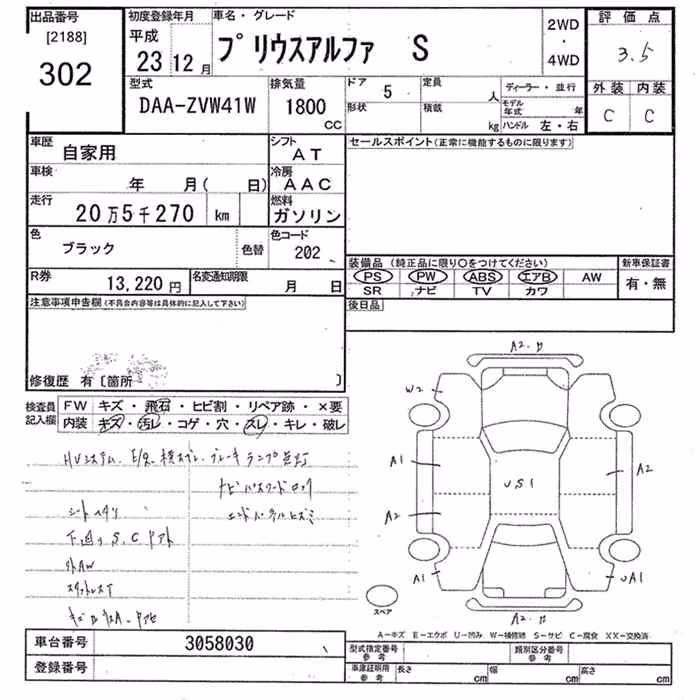 出品番号 初度登録年月 車名・グレード 2WD・4WD 評価点
[2188] 平成 プリウスアルファ S 3.5
302 23年12月
型式 排気量 ドア 5 定員 人 ディーラー・並行 外装 内装
DAA-ZVW41W 1800 CC 形状 積載 kg モデル年式 年 C C
ハンドル 左・右
車歴 自家用 シフト AT セールスポイント(正常に機能するものに限ります)
車検 年 月( 日) 冷房 AAC
走行 20万5千270 km 燃料 ガソリン
色 ブラック 色替 色コード 202
装備品 (純正品に限り○をつけてください) 新車保証書
PS PW ABS エアB AW 有・無
SR ナビ TV カワ
R券 13,220円 名変通知期限 月 日
後日品
注意事項申告欄(不具合内容等は具体的に記入して下さい)
修復歴 有〔箇所 〕
検査員記入欄 FW キズ・飛石・ヒビ割・リペア跡・×要
内装 キズ・汚レ・コゲ・穴・スレ・キレ・破レ
HVシステム、ブレーキランプ点灯
ナビパスワードロック
下廻りS、C
外AW
スタットレスT
A2
W2
A1 US1 A2
A2
A1 UA1
A2
スペア
A-キズ E-エクボ U-凹み W-補修跡 S-サビ C-腐食 XX-交換済
車台番号 3058030
登録番号
型式指定番号 参考 類別区分番号 参考
車庫証明用 参考 長さ cm 幅 cm 高さ cm